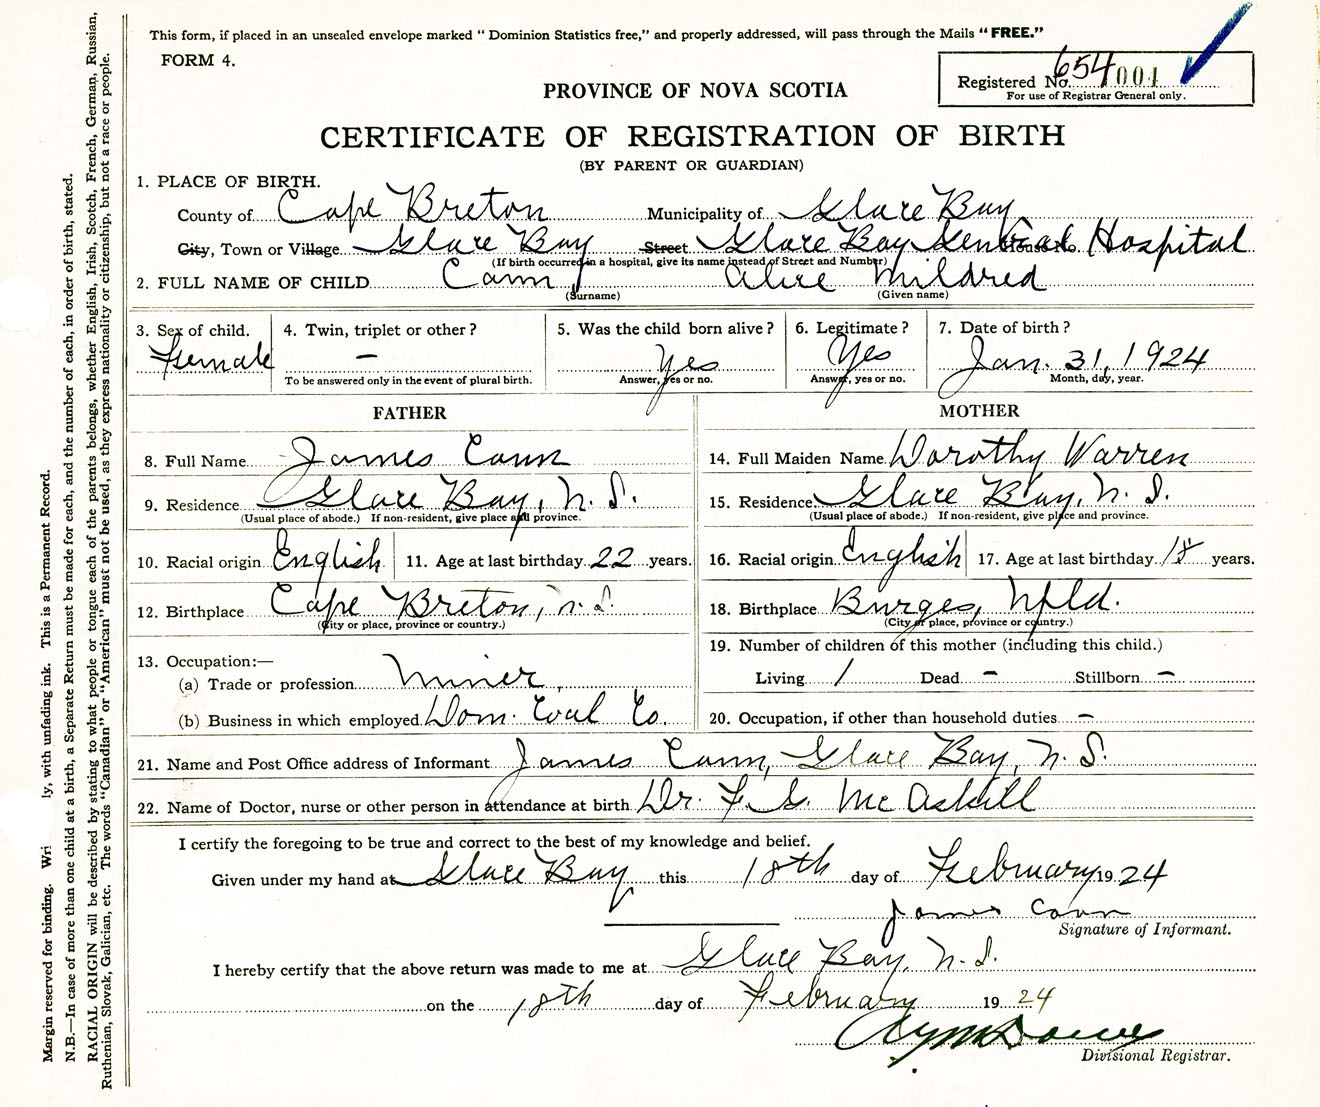 This form, if placed in an unsealed envelope marked " Dominion Statistics free," and properly addressed, will pass through the Mails " FREE."
FORM 4.
Registered No. 654 001
For use of Registrar General only.
PROVINCE OF NOVA SCOTIA
CERTIFICATE OF REGISTRATION OF BIRTH
(BY PARENT OR GUARDIAN)
1. PLACE OF BIRTH.
County of Cape Breton Municipality of Glace Bay
City, Town or Village Glace Bay Street Glace Bay General House No. Hospital
(If birth occurred in a hospital, give its name instead of Street and Number)
2. FULL NAME OF CHILD Cann, Alice Mildred
(Surname) (Given name)
3. Sex of child. 4. Twin, triplet or other ? 5. Was the child born alive ? 6. Legitimate ? 7. Date of birth ?
Female — Yes Yes Jan. 31, 1924
To be answered only in the event of plural birth. Answer, yes or no. Answer, yes or no. Month, day, year.
FATHER MOTHER
8. Full Name James Cann 14. Full Maiden Name Dorothy Warren
9. Residence Glace Bay, N. S. 15. Residence Glace Bay, N. S.
(Usual place of abode.) If non-resident, give place and province. (Usual place of abode.) If non-resident, give place and province.
10. Racial origin English 11. Age at last birthday 22 years. 16. Racial origin English 17. Age at last birthday years.
12. Birthplace Cape Breton, N. S. 18. Birthplace Burges, Nfld.
(City or place, province or country.) (City or place, province or country.)
19. Number of children of this mother (including this child.)
13. Occupation:—
(a) Trade or profession Miner Living 1 Dead — Stillborn —
(b) Business in which employed Dom. Coal Co. 20. Occupation, if other than household duties —
21. Name and Post Office address of Informant James Cann, Glace Bay, N. S.
22. Name of Doctor, nurse or other person in attendance at birth Dr. F. S. McAskill
I certify the foregoing to be true and correct to the best of my knowledge and belief.
Given under my hand at Glace Bay this 18th day of February 1924
James Cann
Signature of Informant.
I hereby certify that the above return was made to me at Glace Bay, N. S.
on the 18th day of February 19 24
Divisional Registrar.
Margin reserved for binding. Wri ly, with unfading ink. This is a Permanent Record.
N.B.—In case of more than one child at a birth, a Separate Return must be made for each, and the number of each, in order of birth, stated.
RACIAL ORIGIN will be described by stating to what people or tongue each of the parents belongs, whether English, Irish, Scotch, French, German, Russian,
Ruthenian, Slovak, Galician, etc. The words "Canadian" or "American" must not be used, as they express nationality or citizenship, but not a race or people.